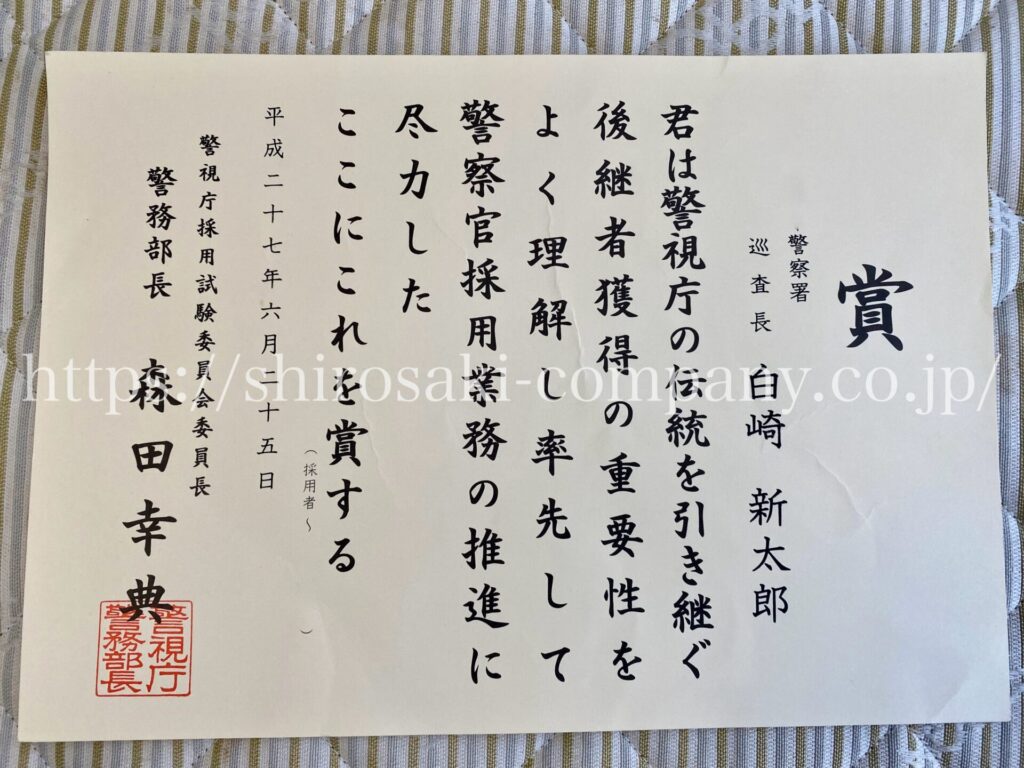 賞
警察署
巡査長 白崎 新太郎
君は警視庁の伝統を引き継ぐ
後継者獲得の重要性を
よく理解し率先して
警察官採用業務の推進に
尽力した
ここにこれを賞する
（採用者～ ）
平成二十七年六月二十五日
警視庁採用試験委員会委員長
警務部長 森田幸典
警視庁
警務部長
https://shirosaki-company.co.jp/